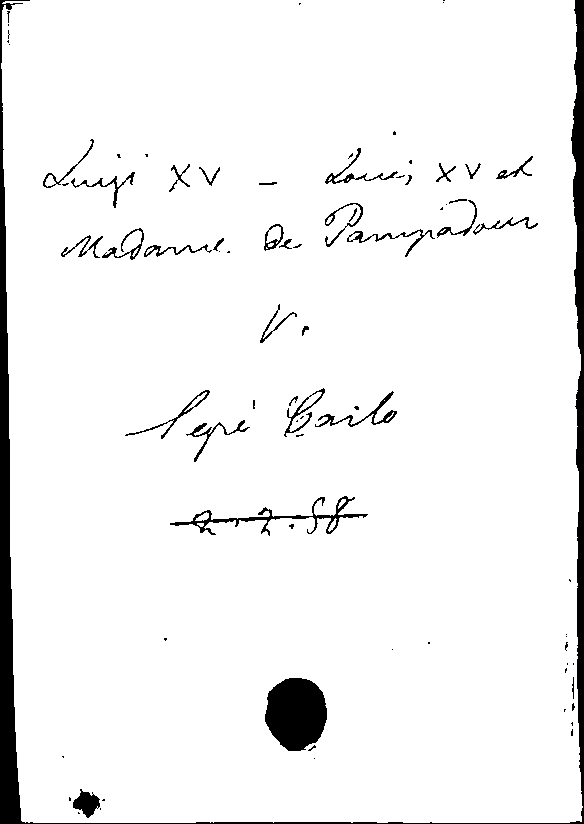 Luigi XV - Louis XV et
Madame de Pompadour
V.
Segré Carlo
2.2.58